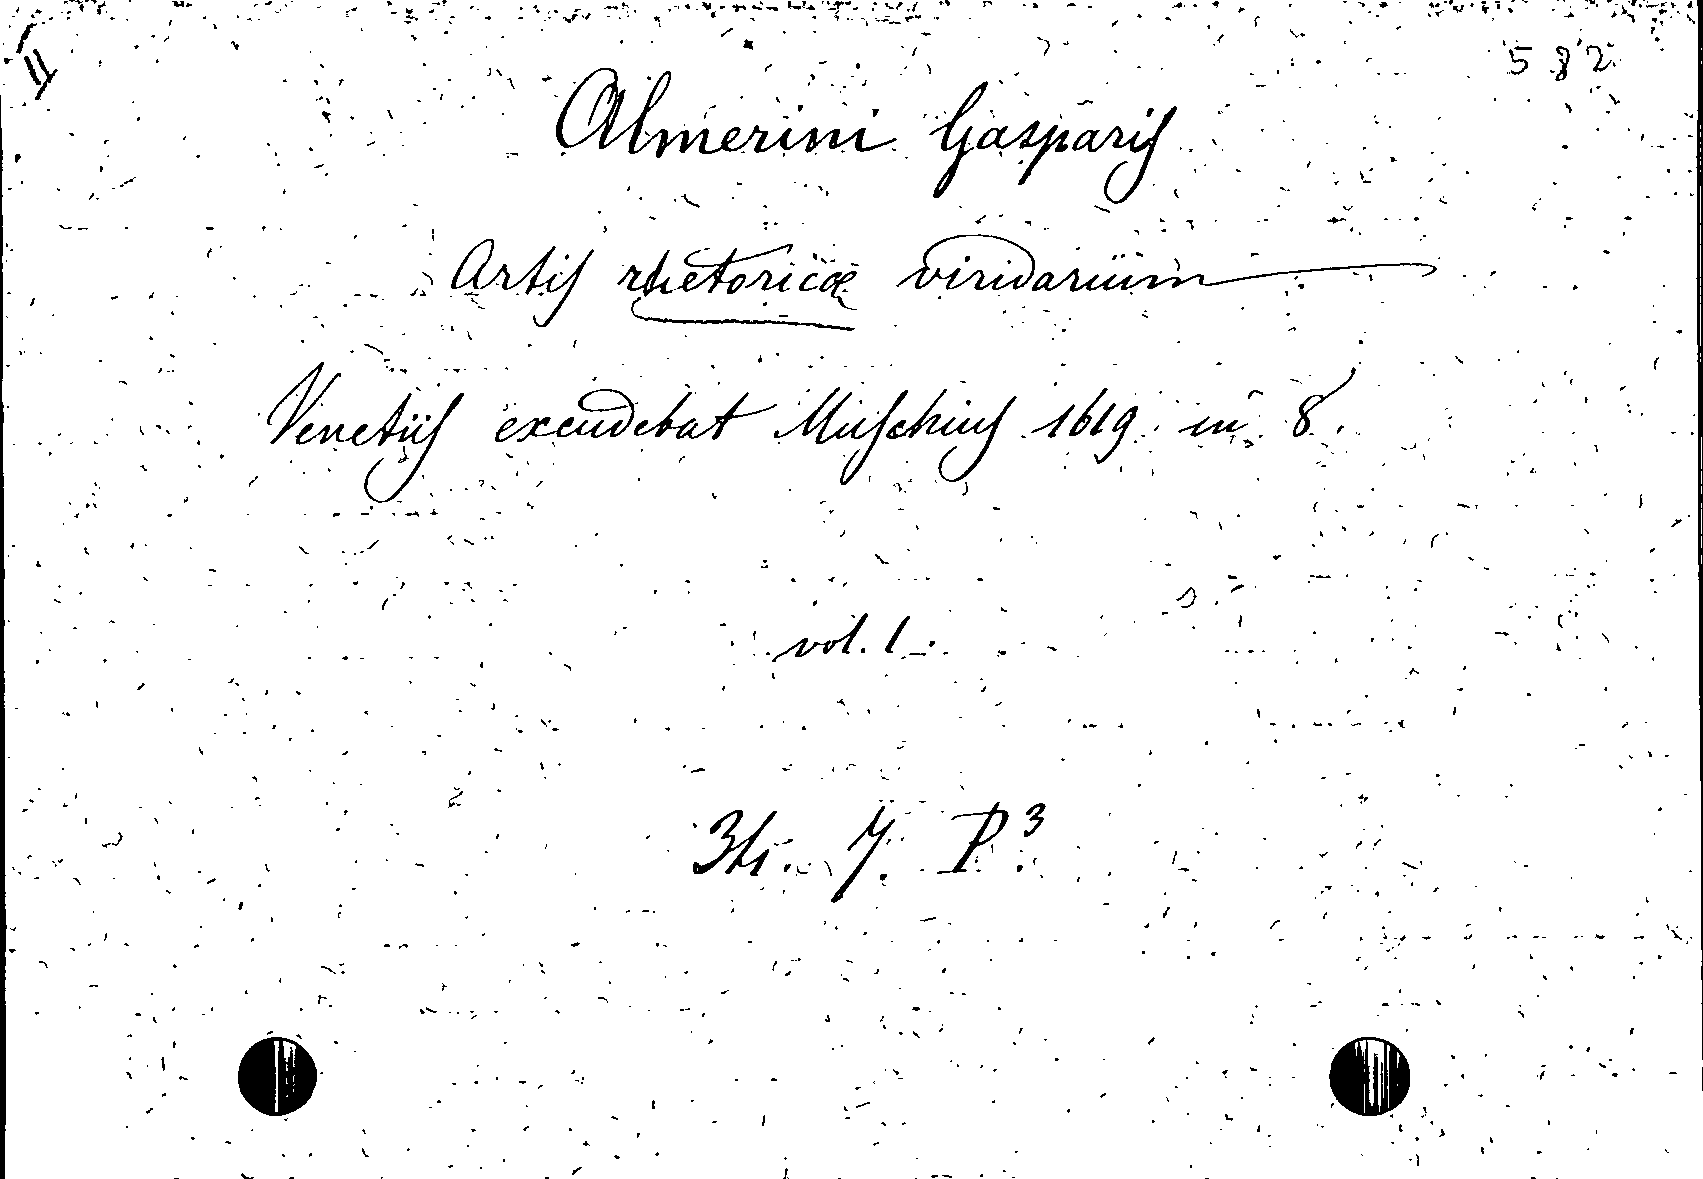 582
Almerini Gasparis
Artis rhetoricæ viridarium
Venetiis excudebat Muschius 1619 in 8.
vol. 1.
P.³